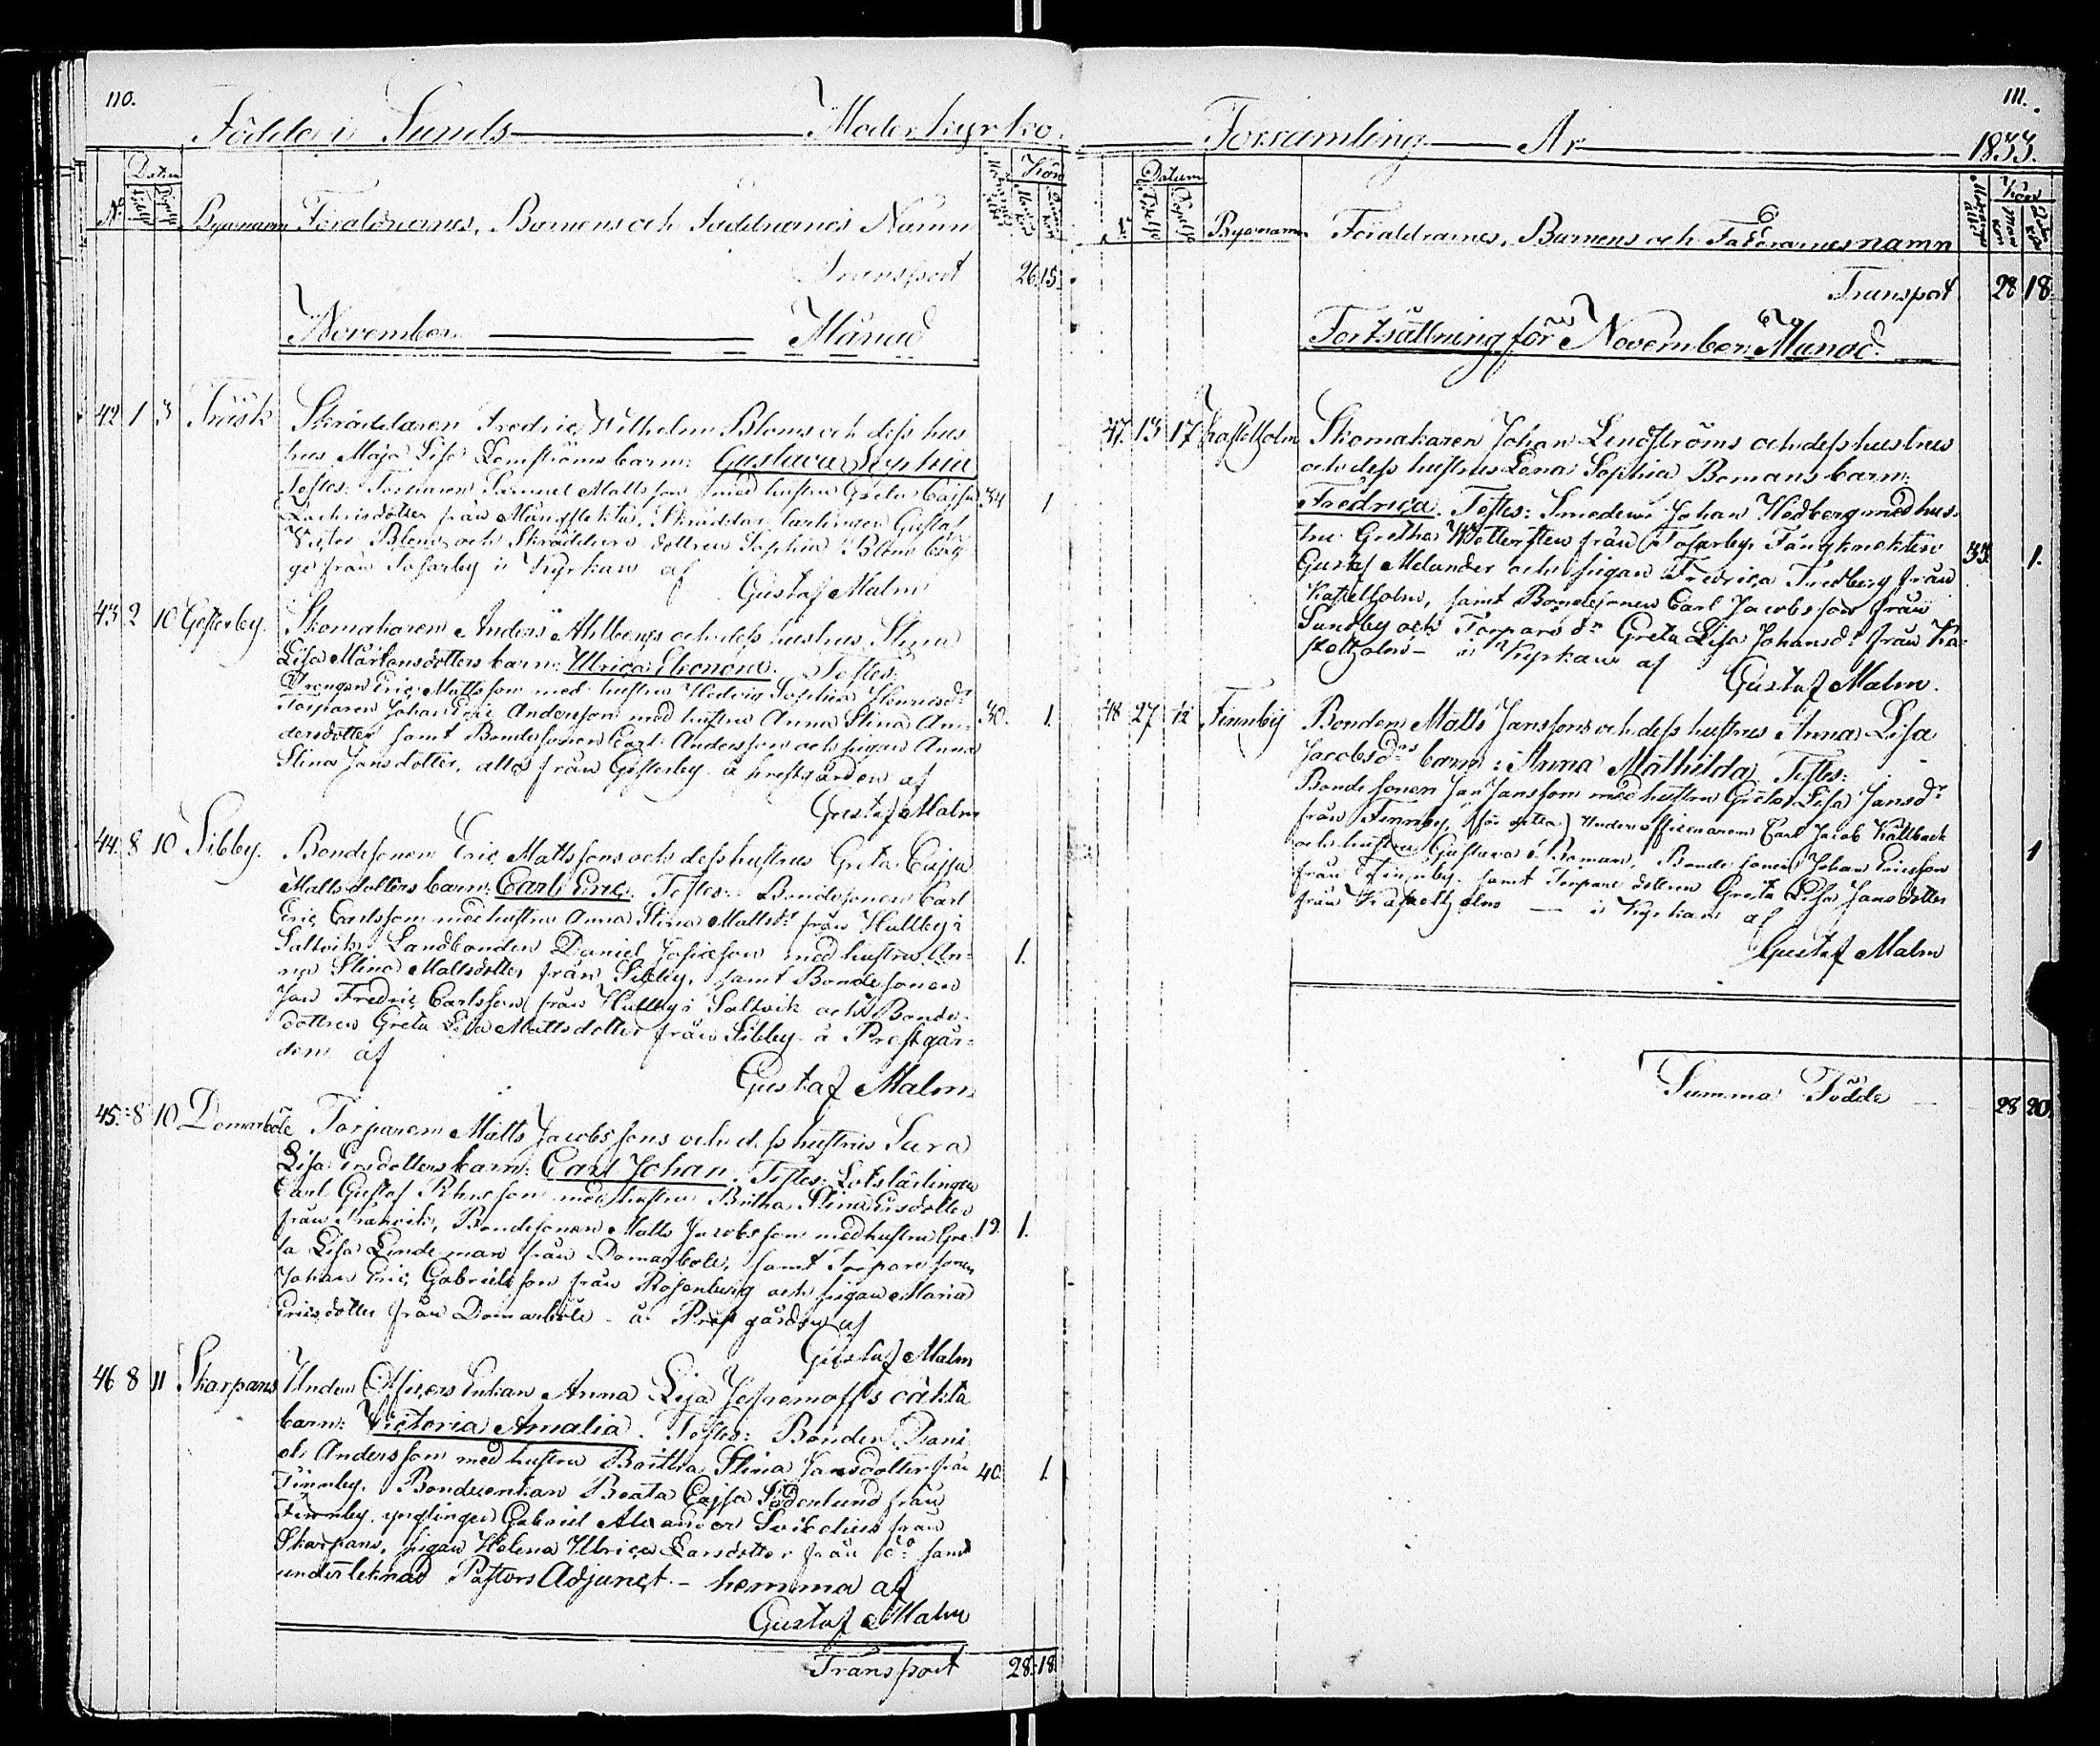 110.
Födde i Sunds Moderkyrko
No Datum Födelse Dopelse Bynamn Föräldrarnes, Barnens och Faddrarnes Namn Moderns ålder Kön Mankön Qvinkön
Transport 26 15
November Månad
42 1 3 Träsk Skräddaren Fredric Wilhelm Bloms och dess hus
trus Maja Lisa Lemströms barn: Gustava Sophia
Testes: Torparen Samuel Mattsson med hustru Greta Cajsa 34 1
från Mångstekta, Skräddar lärlingen Gustaf
Blom och Skräddare dottren Sophia Blom bäg
ge från Tosarby i Kyrkan af Gustaf Malm
43 2 10 Gesterby. Skomakaren Anders Ahlbergs och dess hustrus Stina
Lisa Mårtensdotters barn: Ulrica Eleonora. Testes:
Drengen Eric Mattsson med hustru Hedvig Sophia Henricsdr
Torparen Johan Eric Andersson med hustru Anna Stina An- 30. 1
dersdotter samt Bondesonen Carl Andersson och pigan Anna
Stina Jansdotter, alla från Gesterby å prestgården af
Gustaf Malm
44. 8 10 Sibby. Bondesonen Eric Mattssons och dess hustrus Greta Cajsa
Mattsdotters barn: Carl Eric. Testes: Bondesonen Carl
Eric Carlsson med hustru Anna Stina Mattsdr från Hullby i
Saltvik, Landbonden Daniel Josefsson med hustru An- 1.
na Stina Mattsdotter från Sibby, samt Bondesonen
Jan Fredric Carlsson från Hullby i Saltvik och Bonde-
dottren Greta Lisa Mattsdotter från Sibby å Prestgår-
den af
Gustaf Malm.
45. 8 10 Domarböle Torparen Matts Jacobssons och dess hustrus Sara
Lisa Ersdotters barn: Carl Johan. Testes: Lotslärlingen
Carl Gustaf med hustru Britha Stina Ersdotter
från Bondesonen Matts Jacobsson med hustru Gre- 19. 1.
ta Lisa Lindeman från Domarböle, samt Torparesonen
Johan Eric Gabrielsson från Rosenberg och pigan Maria
Ericsdotter från Domarböle å Prestgården af
Gustaf Malm
46 8 11 Skarpans Under Officers Enkan Anna Lisa Jefremoffs oäkta
barn: Victoria Amalia. Testes: Bonden Dani
el Andersson med hustru Britha Stina Jansdotter från 40. 1.
Finnby. Bondeenkan Beata Cajsa Söderlund från
Finnby. ynglingen Gabriel Alexander från
Skarpans, pigan Helena Ulrica Larsdotter från do samt
undertecknad Pastors Adjunct - hemma af
Gustaf Malm
Transport 28 18
111.
Församling År 1833.
Datum Födelse Dopelse Bynamn Föräldrarnes, Barnens och Faddrarnes namn Moderns ålder Kön Mankön Qvinkön
Transport 28 18
Fortsättning för November Månad.
47. 13 17 Kastelholm Skomakaren Johan Lindströms och dess hustrus
och dess hustrus Lena Sophia Bomans barn:
Fredrica. Testes: Smeden Johan Hedberg med hus-
tru Gretha från Tosarby, Fångknekten 33. 1.
Gustaf Melander och pigan Fredrica Fredberg från
Kastelholm, samt Bondesonen Carl Jacobsson från
Sundby och Torpare dr Greta Lisa Johansdr från Ka-
stelholm - i Kyrkan af
Gustaf Malm.
48 27 12 Finnby Bonden Matts Janssons och dess hustrus Anna Lisa
Jacobsdrs barn: Anna Mathilda Testes:
Bondesonen Jan Jansson med hustru Greta Lisa Jansdr
från Finnby, Underofficeraren Carl Jacob Källback 1
och hustru Gustava Roman, Bondesonen Johan Ericsson
från Finnby. samt Torparedottren Greta Lisa Jansdotter
från Kastelholm - i Kyrkan af
Gustaf Malm
Summa Födde 28 20.